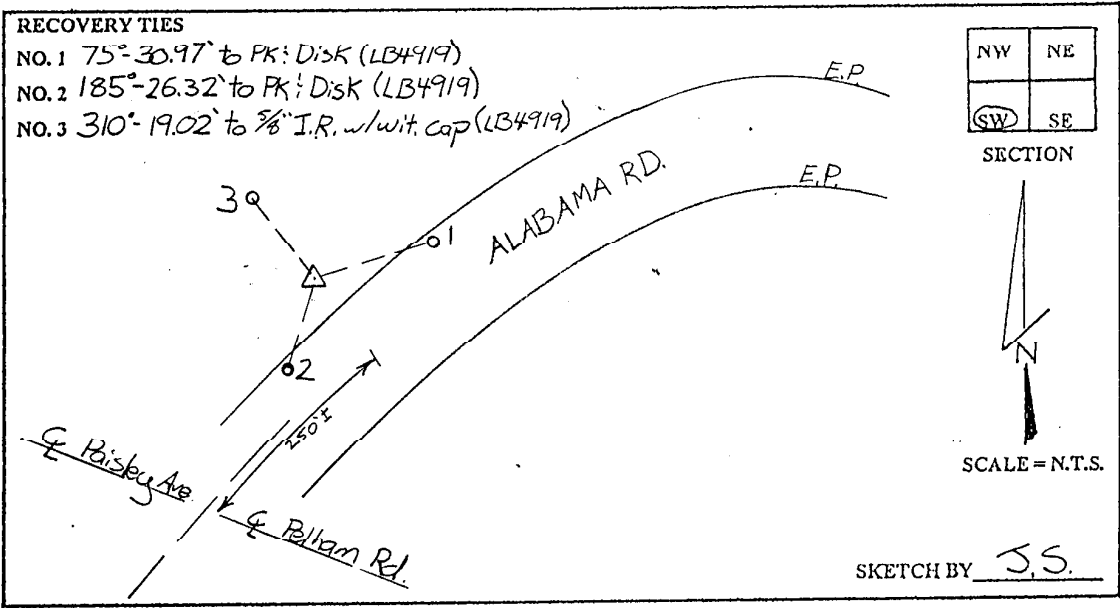 RECOVERY TIES
NO. 1 75°-30.97' to PK & Disk (LB4919)
NO. 2 185°-26.32' to PK & Disk (LB4919)
NO. 3 310°-19.02' to 5/8" I.R. w/wit. cap (LB4919)
NW NE
SW SE
SECTION
E.P.
E.P.
ALABAMA RD.
3
1
2
250'±
N
SCALE = N.T.S.
℄ Paisley Ave.
℄ Pelham Rd.
SKETCH BY J.S.